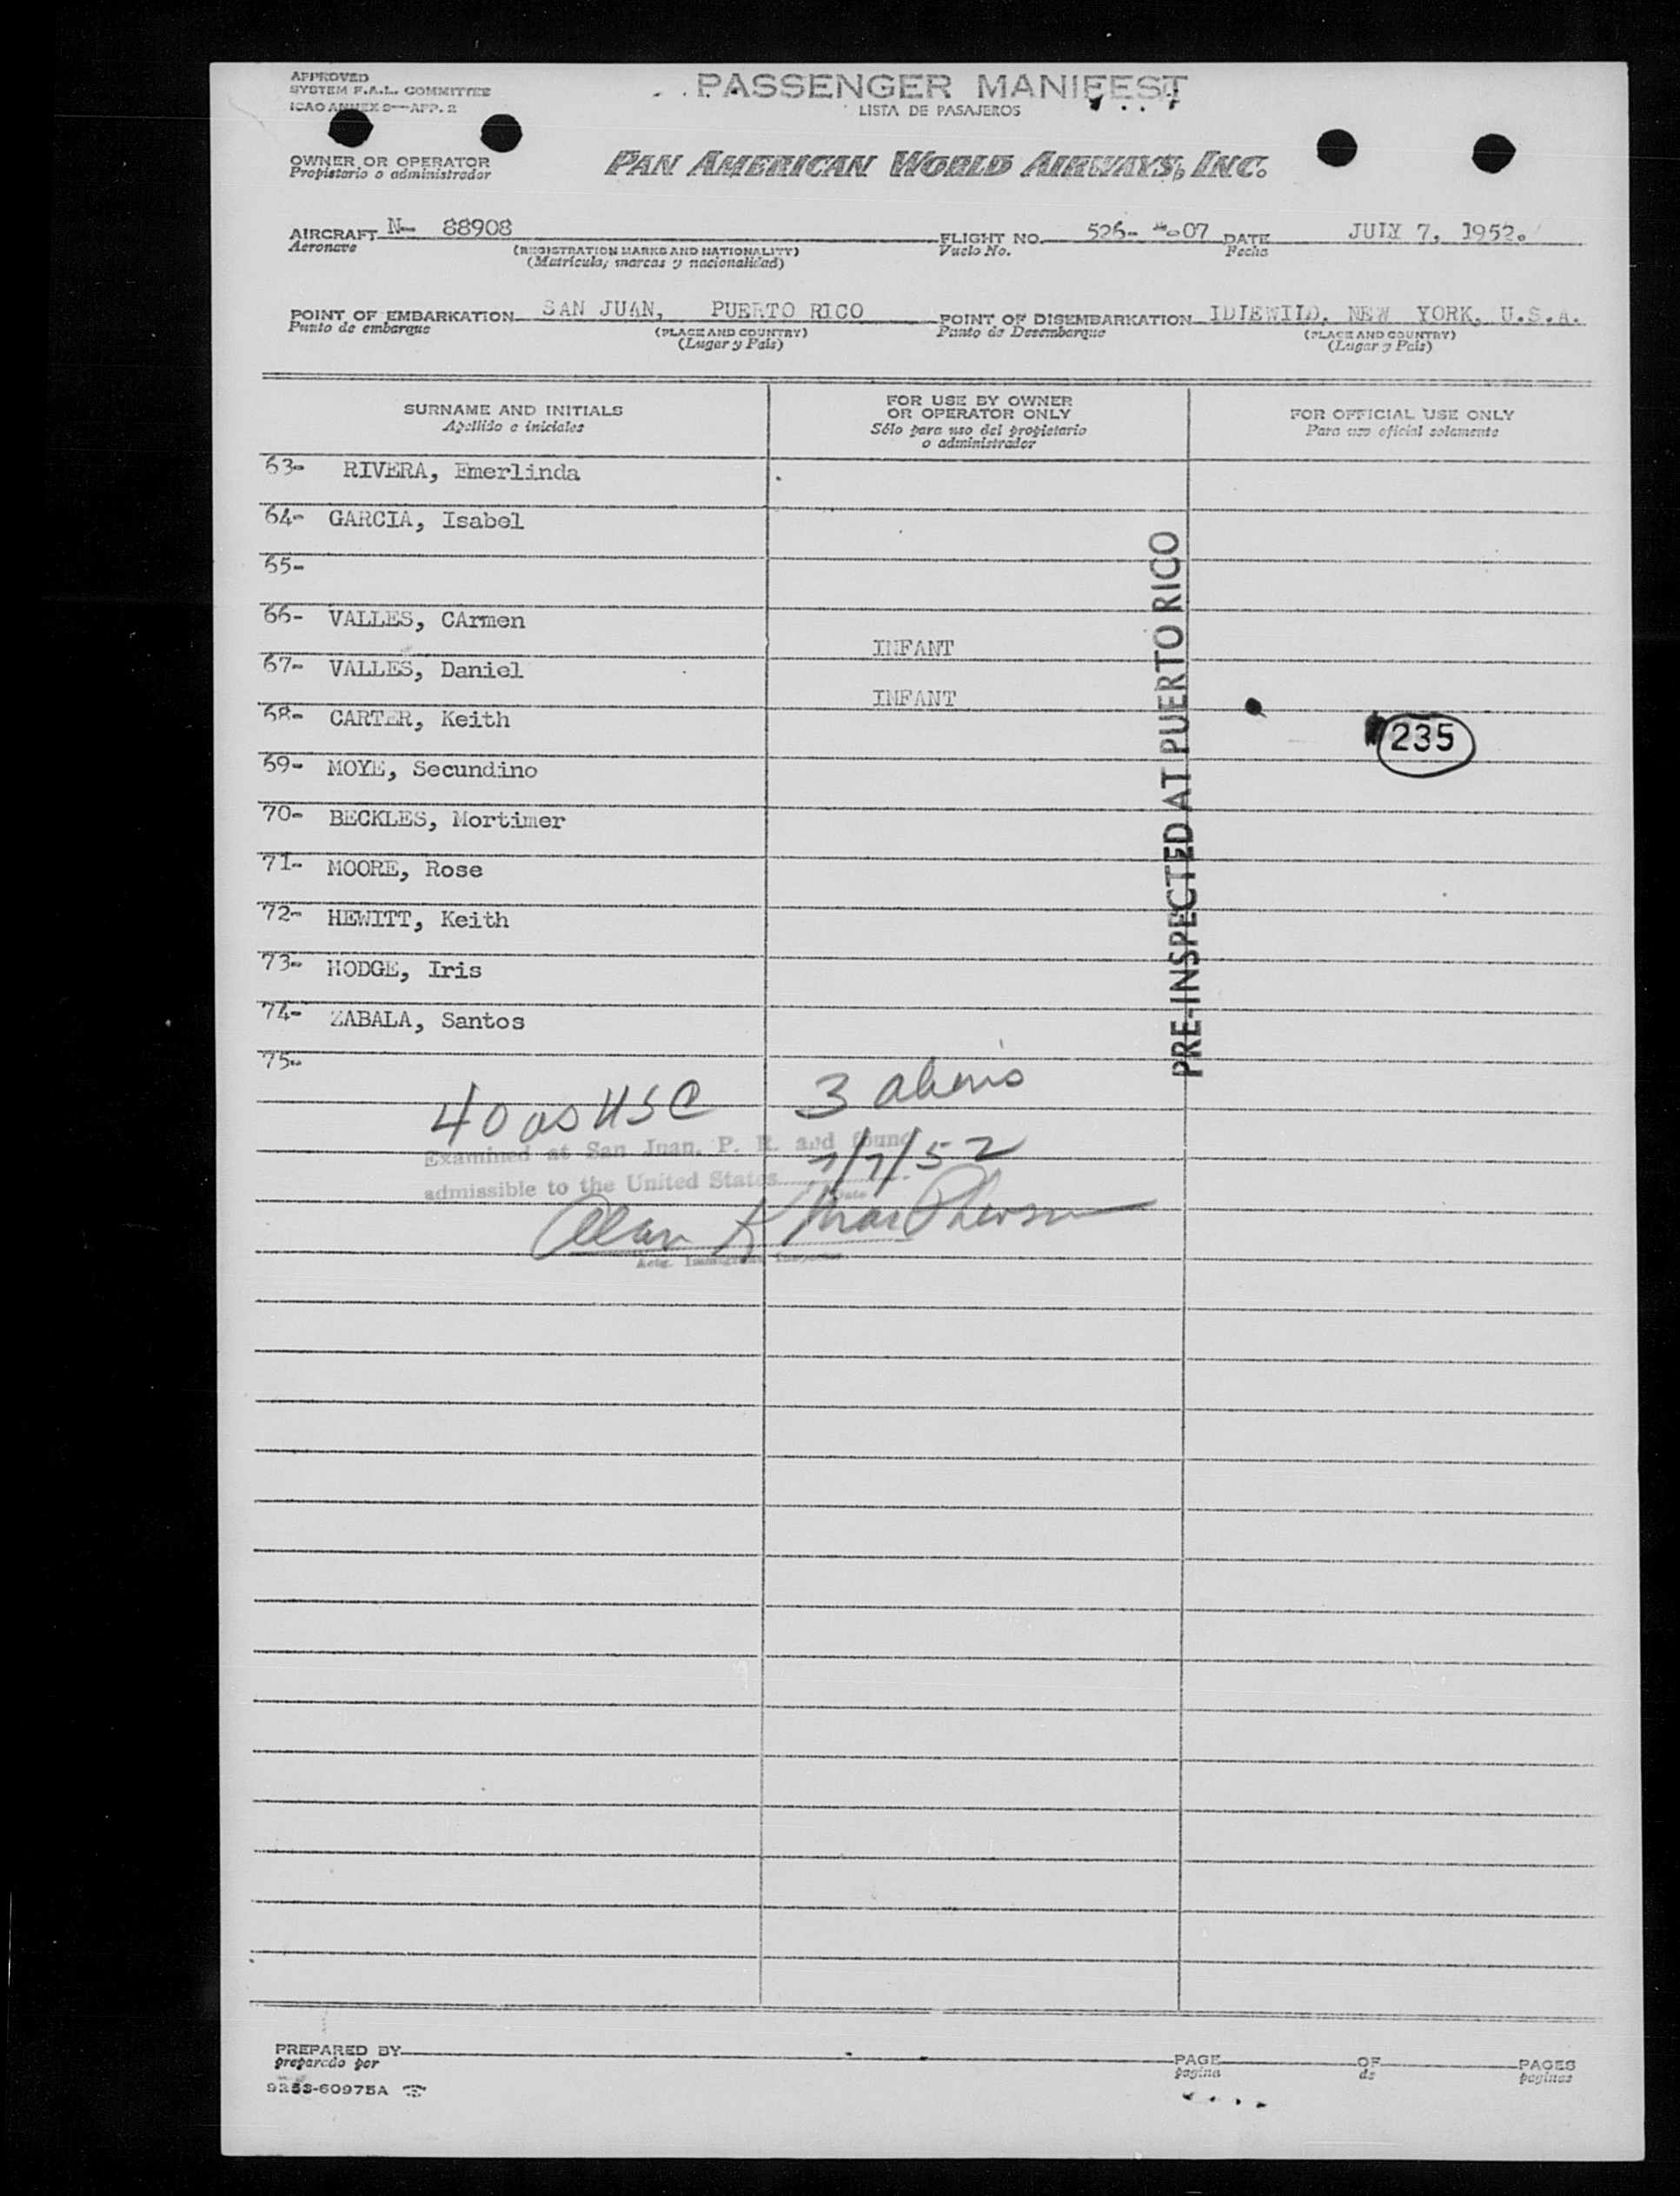 APPROVED
SYSTEM F.A.L. COMMITTEE
ICAO ANNEX 9—APP. 2
PASSENGER MANIFEST
LISTA DE PASAJEROS
OWNER OR OPERATOR
Propietario o administrador
PAN AMERICAN WORLD AIRWAYS, INC.
AIRCRAFT N- 88908 FLIGHT NO. 526- 07 DATE JULY 7, 1952.
Aeronave (REGISTRATION MARKS AND NATIONALITY) Vuelo No. Fecha
(Matrícula, marcas y nacionalidad)
POINT OF EMBARKATION SAN JUAN, PUERTO RICO POINT OF DISEMBARKATION IDLEWILD, NEW YORK, U.S.A.
Punto de embarque (PLACE AND COUNTRY) Punto de Desembarque (PLACE AND COUNTRY)
(Lugar y País) (Lugar y País)
SURNAME AND INITIALS
Apellido e iniciales
FOR USE BY OWNER
OR OPERATOR ONLY
Sólo para uso del propietario
o administrador
FOR OFFICIAL USE ONLY
Para uso oficial solamente
63- RIVERA, Emerlinda
64- GARCIA, Isabel
65-
66- VALLES, CArmen
INFANT
67- VALLES, Daniel
INFANT
68- CARTER, Keith
235
69- MOYE, Secundino
70- BECKLES, Mortimer
71- MOORE, Rose
72- HEWITT, Keith
73- HODGE, Iris
74- ZABALA, Santos
75-
PRE-INSPECTED AT PUERTO RICO
40 as USC 3 aliens
Examined at San Juan, P. R. and found
admissible to the United States 7/7/52
Date
Alan K MacPherson
Actg. Immigrant Inspector
PREPARED BY PAGE OF PAGES
preparado por pagina de paginas
9253-60975A